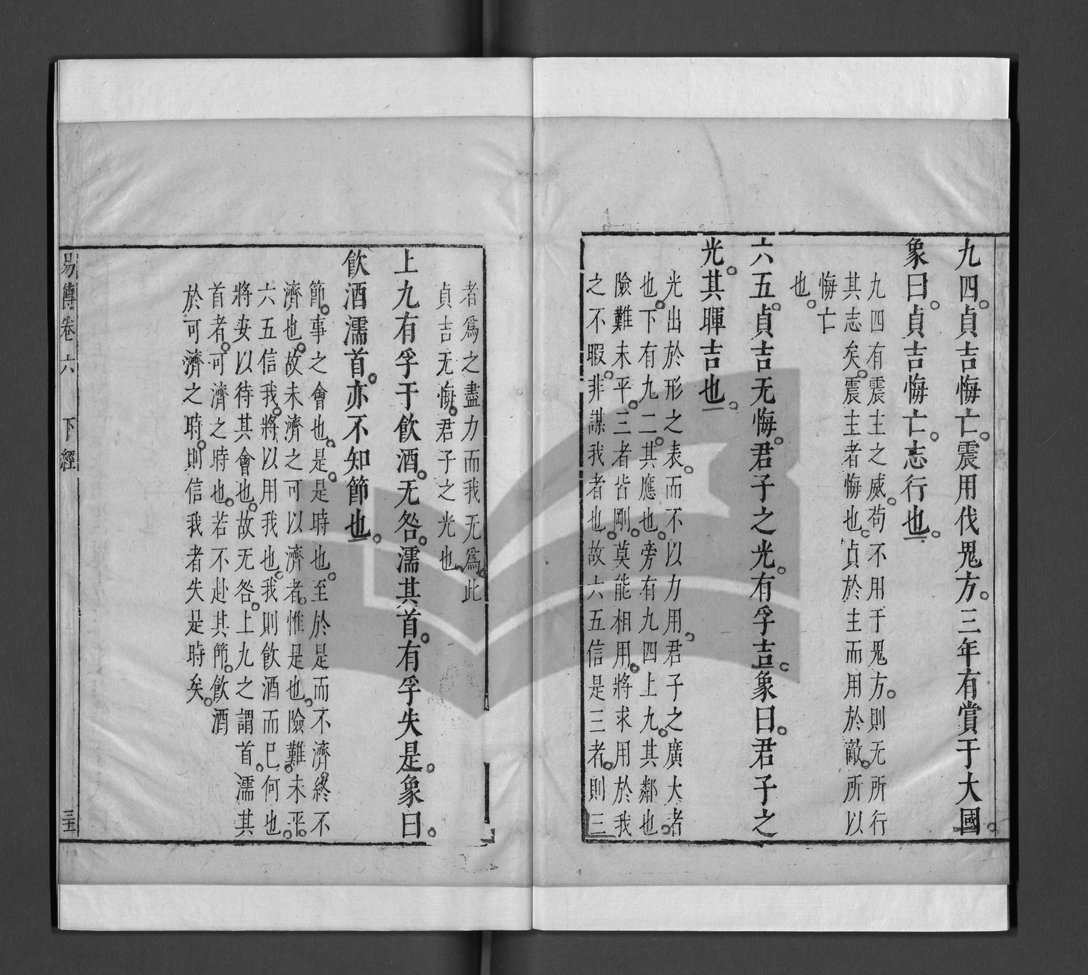 九四。貞吉悔亡。震用伐鬼方。三年有賞于大國。
象曰。貞吉悔亡。志行也。
九四有震主之威。苟不用于鬼方。則无所行
其志矣。震主者悔也。貞於主而用於敵。所以
悔亡
也。
六五。貞吉无悔。君子之光。有孚吉。象曰。君子之
光。其暉吉也。
光出於形之表。而不以力用。君子之廣大者
也。下有九二。其應也。旁有九四上九。其鄰也。
險難未平。三者皆剛。莫能相用。將求用於我
之不暇。非謀我者也。故六五信是三者。則三
者爲之盡力而我无爲。此
貞吉无悔。君子之光也。
上九有孚于飲酒。无咎。濡其首。有孚失是。象曰。
飲酒濡首。亦不知節也。
節。事之會也。是。是時也。至於是而不濟。終不
濟也。故未濟之可以濟者。惟是也。險難未平。
六五信我。將以用我也。我則飲酒而已。何也。
將安以待其會也。故无咎。上九之謂首。濡其
首者。可濟之時也。若不赴其節。飲酒
於可濟之時。則信我者失是時矣。
易傳卷六 下經 三五